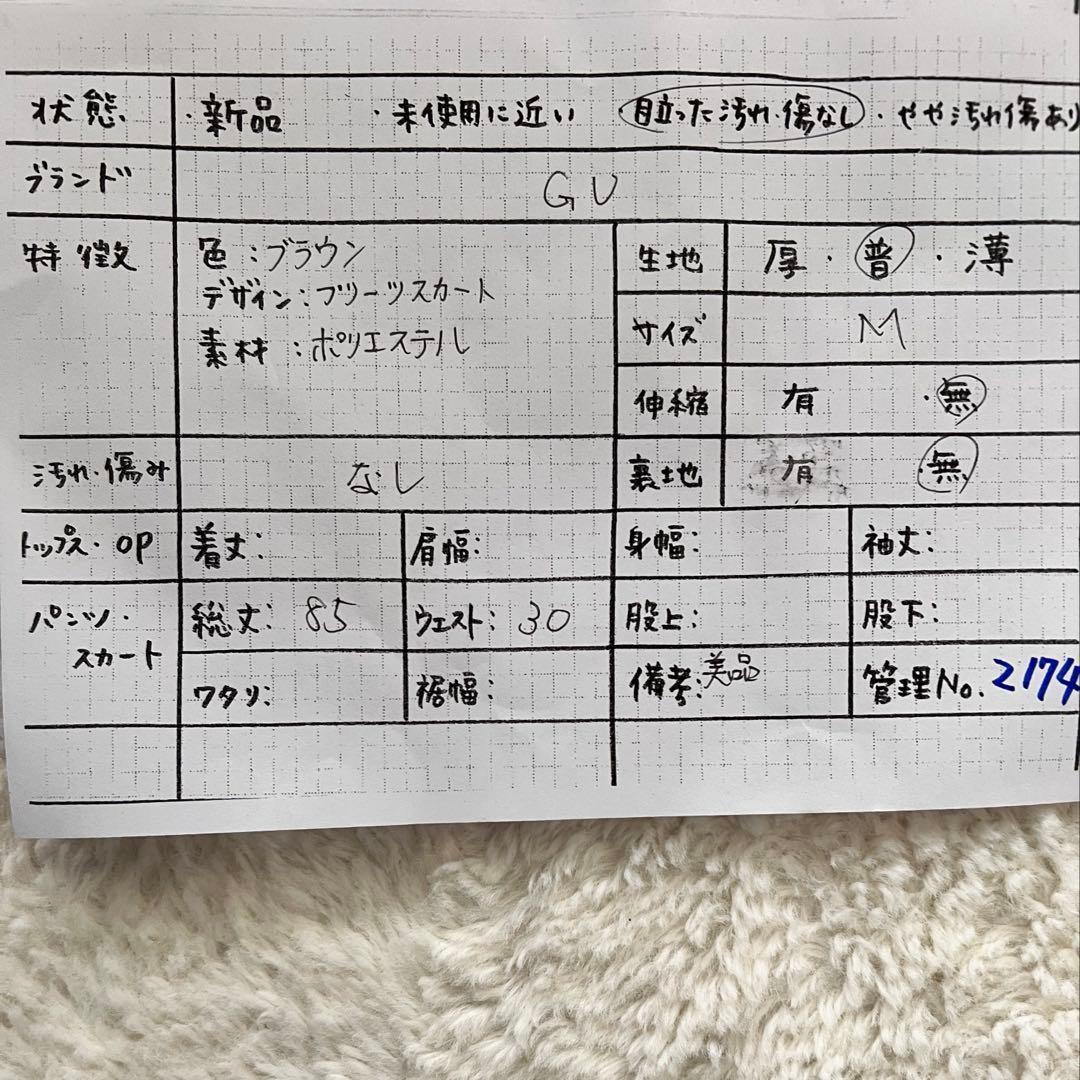 状態 ・新品 ・未使用に近い 目立った汚れ・傷なし・やや汚れ傷あり
ブランド GU
特徴 色：ブラウン
デザイン：プリーツスカート
素材：ポリエステル
生地 厚・普・薄
サイズ M
伸縮 有・無
汚れ・傷み なし
裏地 有・無
トップス・OP 着丈： 肩幅： 身幅： 袖丈：
パンツ・スカート 総丈：85 ウエスト：30 股上： 股下：
ワタリ： 裾幅： 備考：美品 管理No.2174